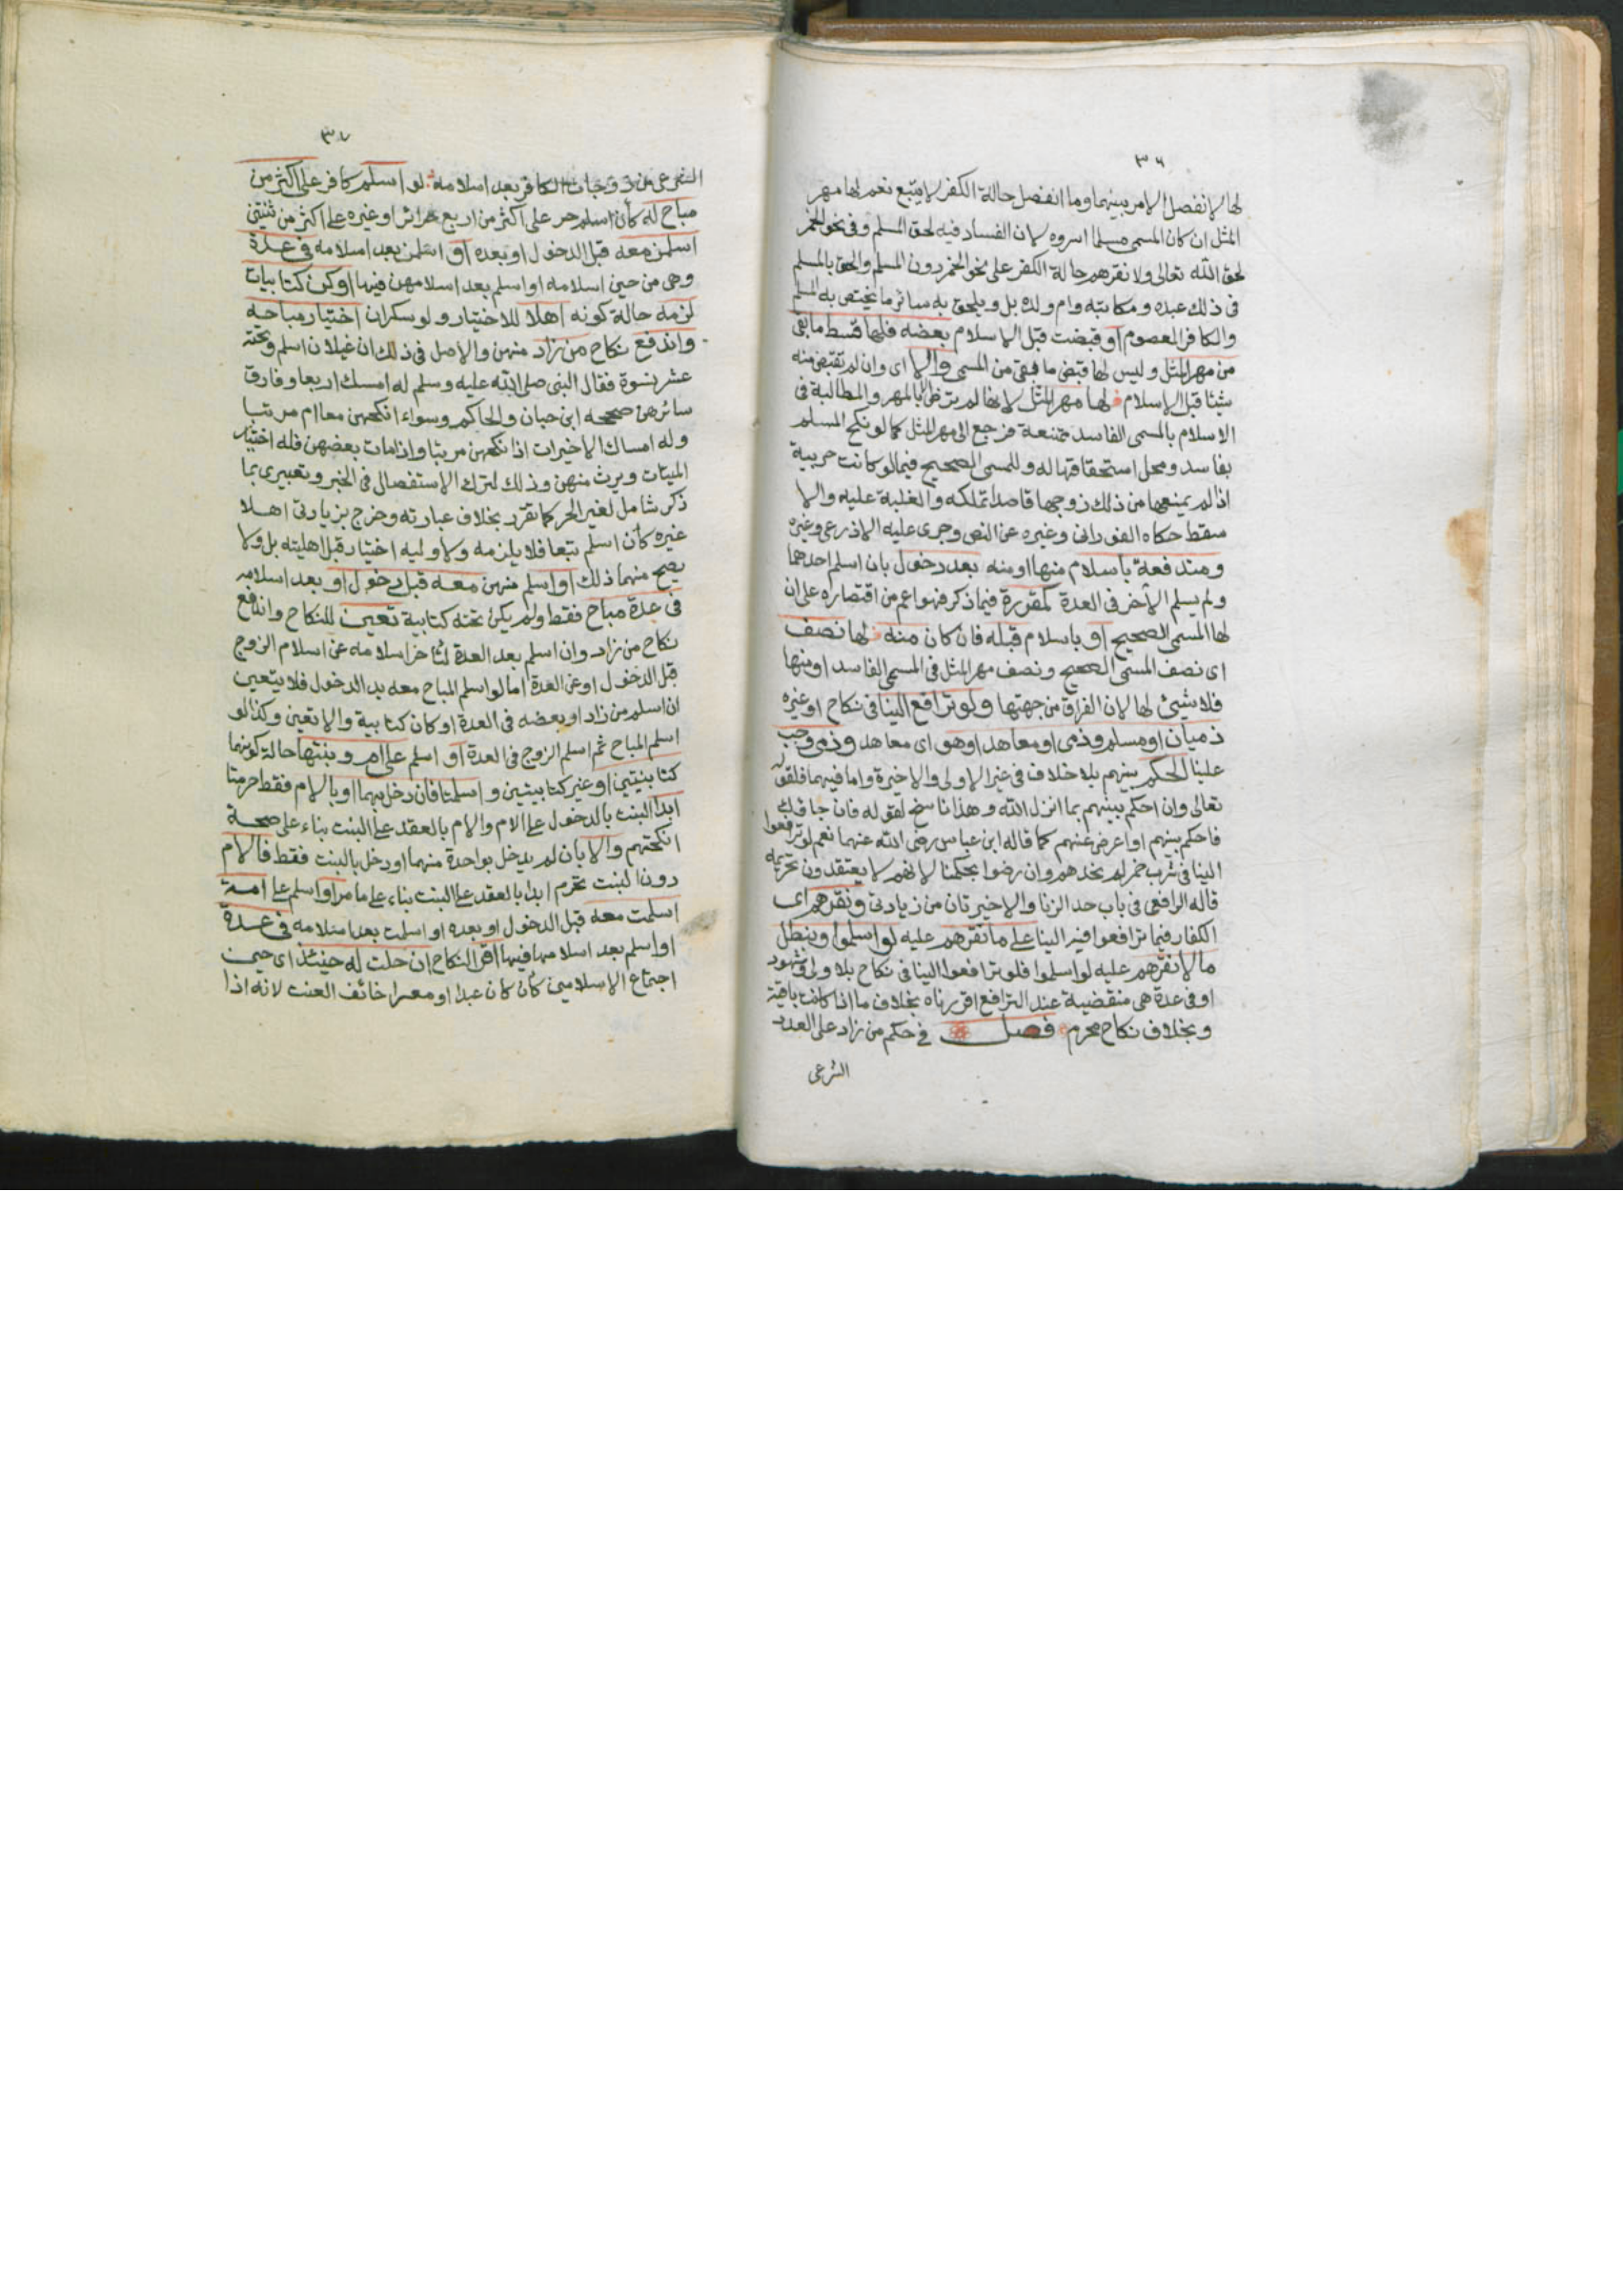 ٣٦
لها لانفصل الامر بينهما وما انفصل حالة الكفر لا يتبع نعم لها مهر
المثل ان كان المسمى مسلما اسروه لان الفساد فيه لحق المسلم وفى نحو الخمر
لحق الله تعالى ولا نقرهم حالة الكفر على نحو الخمر دون المسلم والحق بالمسلم
فى ذلك عبده ومكاتبه وام ولده بل ويلحق به سائر ما يختص به المسلم
والكافر المعصوم او قبضت قبل الاسلام بعضه فلها قسط ما بقى
من مهر المثل وليس لها قبض ما بقى من المسمى والا اى وان لم تقبض منه
شيئا قبل الاسلام فلها مهر المثل لانها لم ترض الا بالمهر والمطالبة فى
الاسلام بالمسمى الفاسد ممتنعة فرجع الى مهر المثل كما لو نكح المسلم
بفاسد ومحل استحقاقها له وللمسمى الصحيح فيما لو كانت حربية
اذا لم يمنعها من ذلك زوجها قاصدا تملكه والغلبة عليه والا
سقط حكاه الفورانى وغيره عن النص وجرى عليه الاذرعى وغيره
ومندفعة باسلام منها او منه بعد دخول بان اسلم احدهما
ولم يسلم الآخر فى العدة كمقررة فيما ذكر فهو اعم من اقتصاره على ان
لها المسمى الصحيح او باسلام قبله فان كان منه فلها نصف
اى نصف المسمى الصحيح ونصف مهر المثل فى المسمى الفاسد او منها
فلا شيئ لها لان الفراق من جهتها ولو ترافع الينا فى نكاح او غيره
ذميان او مسلم وذمى او معاهد او هو اى معاهد وذمى وجب
علينا الحكم بينهم بلا خلاف فى غير الاولى والاخيرة واما فيهما فلقوله
تعالى وان احكم بينهم بما انزل الله وهذا ناسخ لقوله فان جاؤك
فاحكم بينهم او اعرض عنهم كما قاله ابن عباس رضى الله عنهما نعم لو ترافعوا
الينا فى شرب خمر لم نحدهم وان رضوا بحكمنا لانهم لا يعتقدون تحريمه
قاله الرافعى فى باب حد الزنا والاخيرتان من زيادتى ونقرهم اى
الكفار فيما ترافعوا فيه الينا على ما نقرهم عليه لو اسلموا ونبطل
ما لا نقرهم عليه لو اسلموا فلو ترافعوا الينا فى نكاح بلا ولى وشهود
او فى عدة هى منقضية عند الترافع اقررناه بخلاف ما اذا كانت باقية
وبخلاف نكاح محرم فصل فى حكم من زاد على العدد
الشرعى
٣٧
الشرعى من زوجات الكافر بعد اسلامه لو اسلم كافر على اكثر من
مباح له كأن اسلم حر على اكثر من اربع حرائر او غيره على اكثر من ثنتين
اسلمن معه قبل الدخول او بعده او اسلمن بعد اسلامه فى عدة
وهى من حين اسلامه او اسلم بعد اسلامهن فيها او كن كتابيات
لزمه حالة كونه اهلا للاختيار ولو سكران اختيار مباحه
واندفع نكاح من زاد منهن والاصل فى ذلك ان غيلان اسلم وتحته
عشر نسوة فقال النبى صلى الله عليه وسلم له امسك اربعا وفارق
سائرهن صححه ابن حبان والحاكم وسواء انكحهن معا ام مرتبا
وله امساك الاخيرات اذا نكحهن مرتبا واذا مات بعضهن فله اختيار
الميتات ويرث منهن وذلك لترك الاستفصال فى الخبر وتعبيرى بما
ذكر شامل لغير الحر كما تقرر بخلاف عبارته وخرج بزيادتى اهلا
غيره كأن اسلم تبعا فلا يلزمه ولا وليه اختيار قبل اهليته بل ولا
يصح منهما ذلك او اسلم منهن معه قبل دخول او بعد اسلامه
فى عدة مباح فقط ولم يكن تحته كتابية تعين للنكاح واندفع
نكاح من زاد وان اسلم بعد العدة لتأخر اسلامه عن اسلام الزوج
قبل الدخول او عن العدة اما لو اسلم المباح معه بعد الدخول فلا يتعين
ان اسلم من زاد او بعضه فى العدة او كان كتابية والا تعين وكذا لو
اسلم المباح ثم اسلم الزوج فى العدة او اسلم على ام وبنتها حالة كونهما
كتابيتين او غير كتابيتين واسلمتا فان دخل بهما او بالام فقط حرمتا
ابدا البنت بالدخول على الام والام بالعقد على البنت بناء على صحة
انكحتهم والا بان لم يدخل بواحدة منهما او دخل بالبنت فقط فالام
دون البنت تحرم ابدا بالعقد على البنت بناء على ما مر او اسلم على امة
اسلمت معه قبل الدخول او بعده او اسلمت بعد اسلامه فى عدة
او اسلم بعد اسلامها فيها اقر النكاح ان حلت له حينئذ اى حين
اجتماع الاسلامين كأن كان عبدا او معسرا خائف العنت لانه اذا